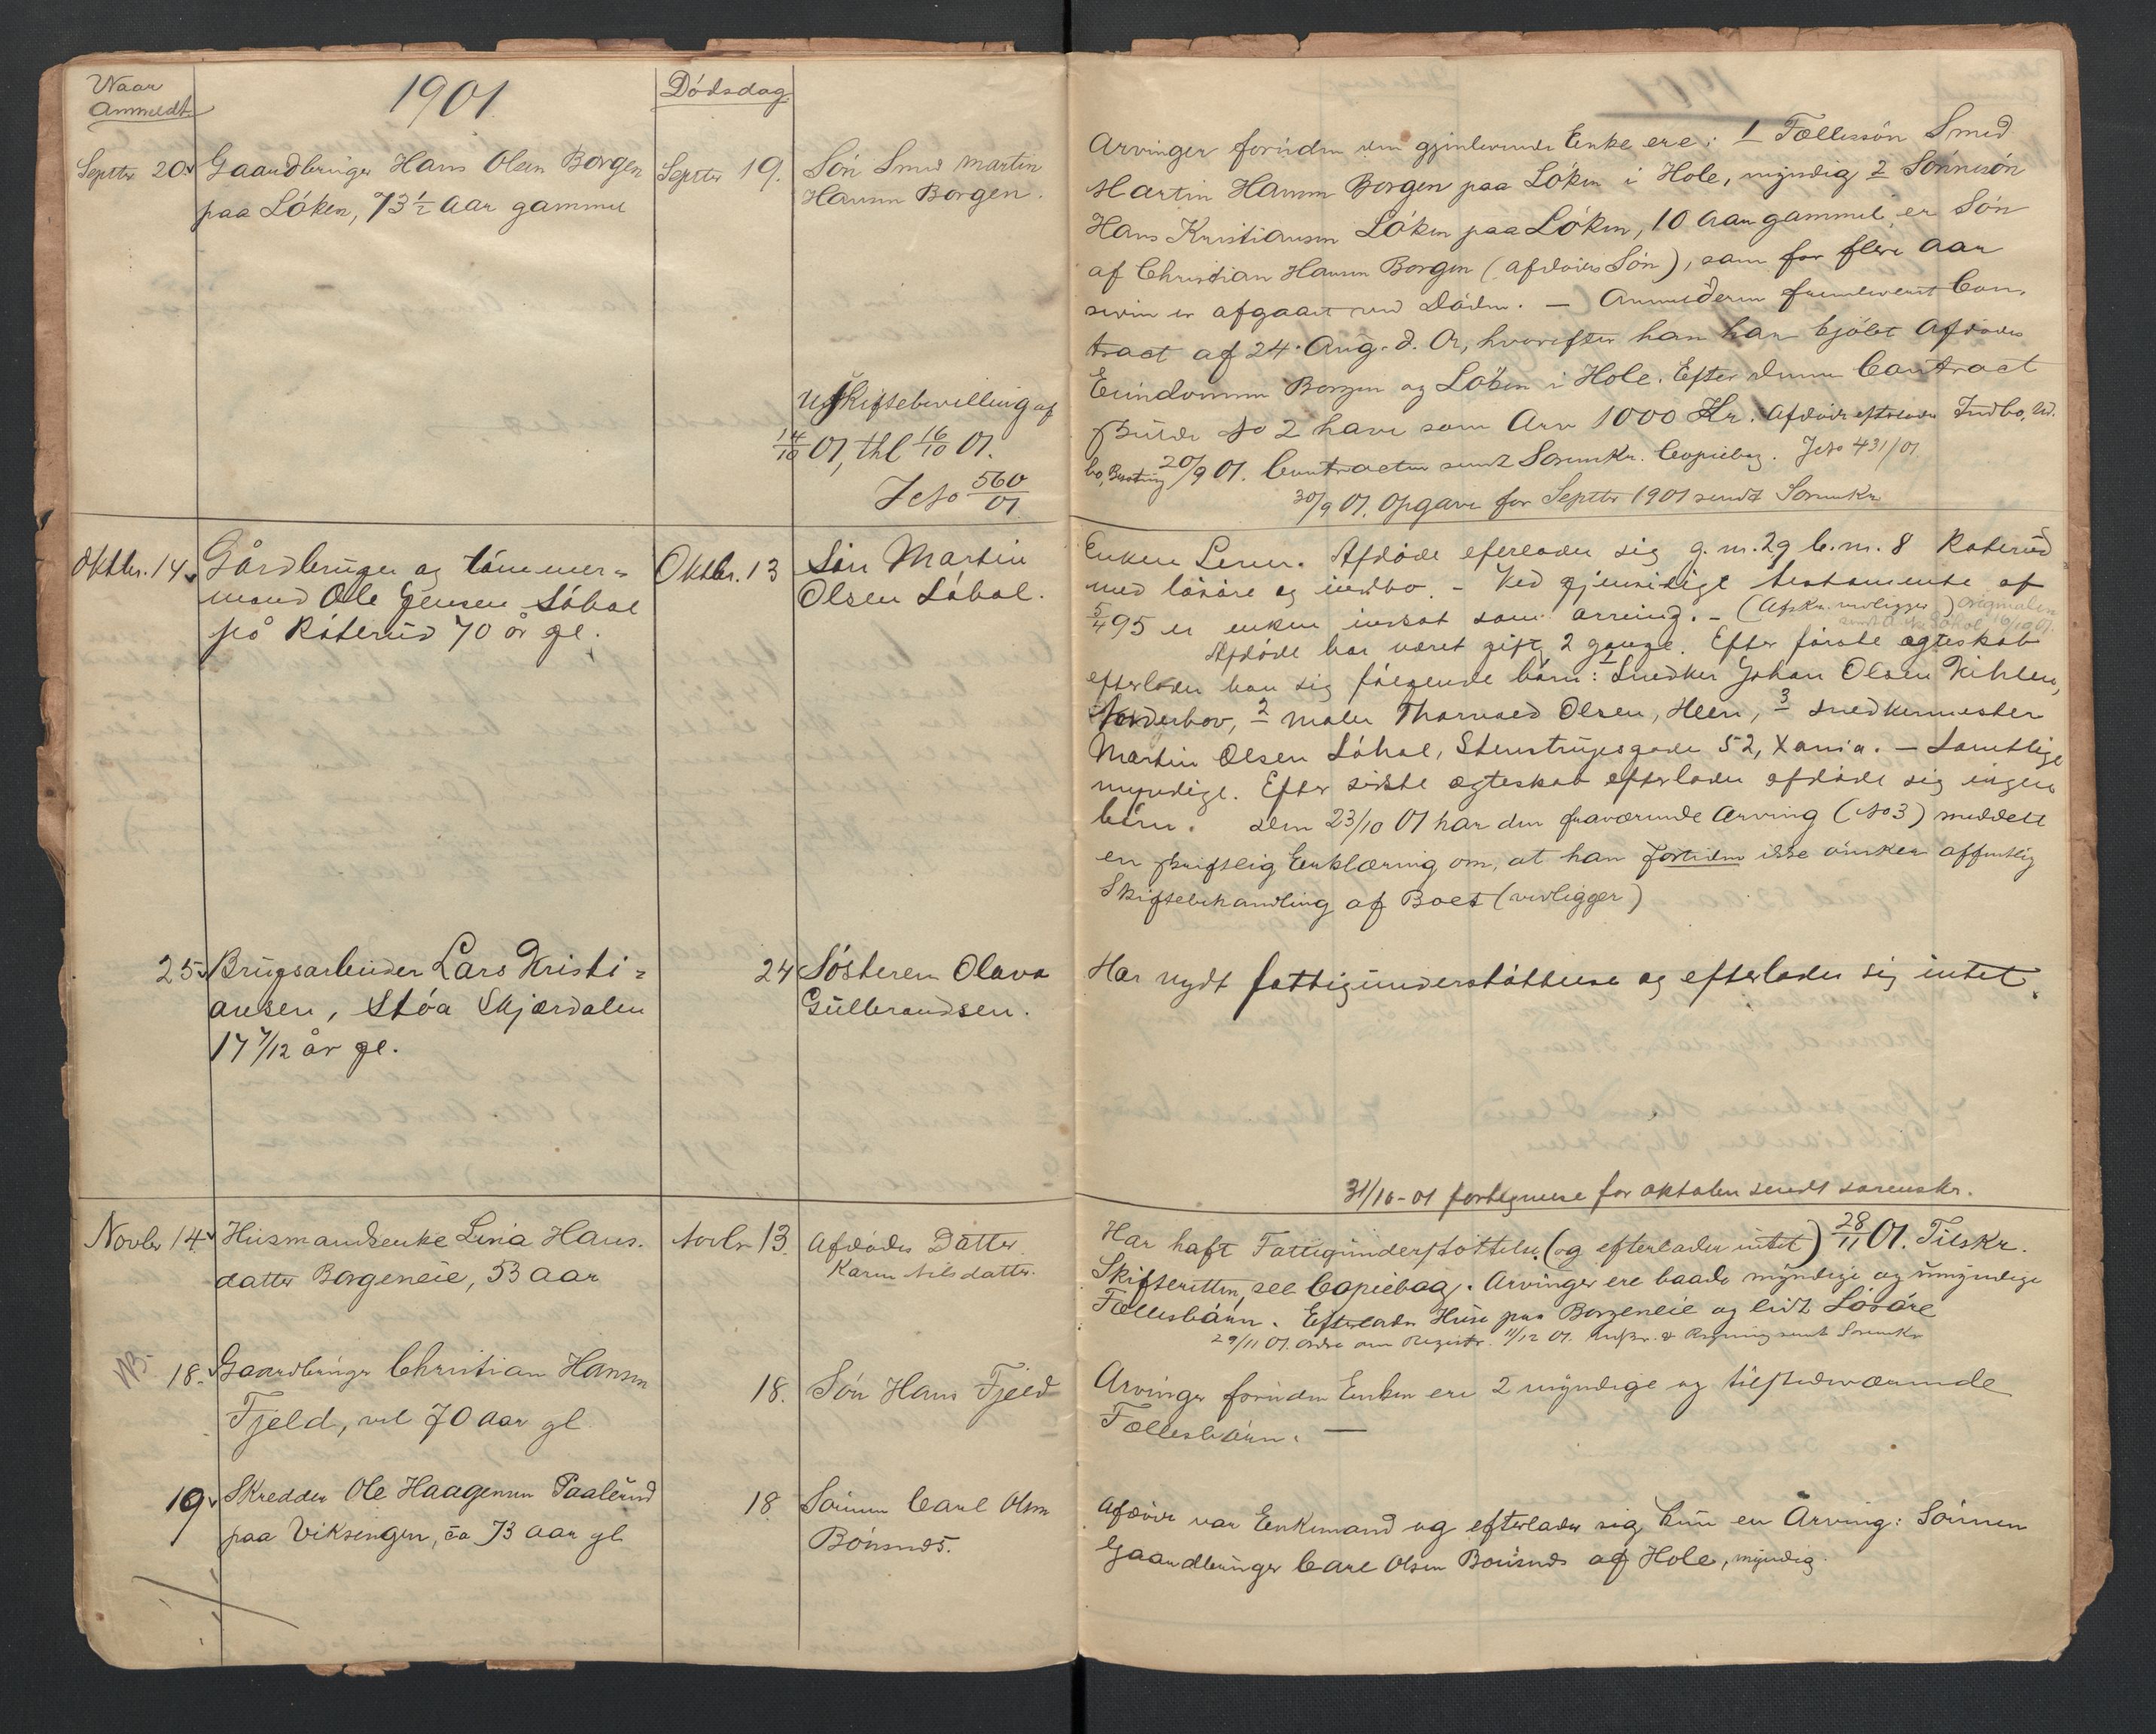 Naar
Anmeldt
1901
Dödsdag
Septbr 20. Gaardbruger Hans Olsen Borgen
paa Löken, 73 1/2 Aar gammel
Septbr 19.
Sön Smed Martin
Hansen Borgen.
Uskiftebevilling af
14/10 01, thl 16/10 01.
JNo 560/01
Arvinger foruden den gjenlevende Enke ere: 1 Fællessön Smed
Martin Hansen Borgen paa Löken i Hole, myndig 2 Sönnesön
Hans Kristiansen Löken paa Löken, 10 Aar gammel er Sön
af Christian Hansen Borgen (afdödes Sön), som for flere Aar
siden er afgaaet ved Döden. — Anmelderen fremleverte Con-
tract af 24. Aug. d. A, hvorefter han har kjöbt Afdödes
Eiendomme Borgen og Löken i Hole. Efter denne Contract
skulde No 2 have som Arv 1000 Kr. Afdöde efterlader Indbo, Ud-
bo, Besætning 20/9 01. Contracten sendt Sorenskr. Copiebog. JNo 431/01.
30/9 01. Opgave for Septbr 1901 sendt Sorenskr
Oktbr. 14 Gårdbruger og tömmer=
mand Ole Jensen Löbal
på Röterud 70 år gl.
Oktbr. 13
Sön Martin
Olsen Löbal.
Enken Lene. Afdöde eferlader sig g.nr. 29 b.nr. 8 Röterud
med lösöre og indbo. - Ved gjensidige testamente af
5/4 95 er enken indsat som arving. - (Afskr. vedligger) Originalen
sendt 16/10 01.
Afdöde har været gift 2 gange. Efter förste ægteskab
efterlader han sig fölgende börn: 1 Snedker Johan Olsen Kihlen,
Norderhov, 2 maler Thorvald Olsen, Heen, 3 snedkermester
Martin Olsen Löbal, Stenstrupsgade 52, Xania. — Samtlige
myndige. Efter sidste ægteskab efterlader afdöde sig ingen
börn. Den 23/10 01 har den fraværende Arving (No 3) meddelt
en skriftlig Erklæring om, at han fortiden ikke önsker offentlig
Skiftebehandling af Boet (vedligger)
25 Brugsarbeider Lars Kristi=
ansen, Stöa Skjærdalen
17 7/12 år gl.
24
Sösteren Olava
Gulbrandsen.
Har nydt fattigunderstöttelse og efterlader sig intet.
31/10-01 fortegnelse for oktober sendt sorenskr.
Novbr 14 Husmandsenke Lina Hans-
datter Borgeneie, 53 Aar
Novbr 13.
Afdödes Datter
Karen Nilsdatter.
Har haft Fattigunderstöttelse. (og efterlader intet) 28/11 01. Tilskr.
Skifteretten, see Copiebog. Arvinger ere baade myndige og umyndige
Fællesbörn. Efterlader Huse paa Borgeneie og lidt Lösöre
29/11 01. Ordre om Registr. 11/12 01. & Regning sendt Sorenskr
NB.
18. Gaardbruger Christian Hansen
Fjeld, vel 70 Aar gl.
18.
Sön Hans Fjeld
Arvinger foruden Enken ere 2 myndige og tilstedeværende
Fællesbörn. —
19 Skredder Ole Haagensen Paalerud
paa Viksengen, ca 73 Aar gl
18
Sönnen Carl Olsen
Bönsnds.
Afdöde var Enkemand og efterlader sig kun en Arving: Sönnen
Gaardbruger Carl Olsen Bönsnds af Hole, myndig.